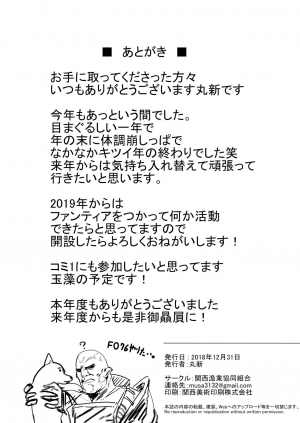 ■ あとがき ■
お手に取ってくださった方々
いつもありがとうございます丸新です
今年もあっという間でした。
目まぐるしい一年で
年の末に体調崩しっぱで
なかなかキツイ年の終わりでした笑
来年からは気持ち入れ替えて頑張って
行きたいと思います。
2019年からは
ファンティアをつかって何か活動
できたらと思ってますので
開設したらよろしくおねがいします！
コミ1にも参加したいと思ってます
玉藻の予定です！
本年度もありがとうございました
来年度からも是非御贔屓に！
発行日：2018年12月31日
発行者：丸新
サークル：関西漁業協同組合
連絡先：musa3132@gmail.com
印刷：関西美術印刷株式会社
本誌の内容の無断転載、複製、Webへのアップロード等は一切禁じます。
No reproduction or republication without written permission.